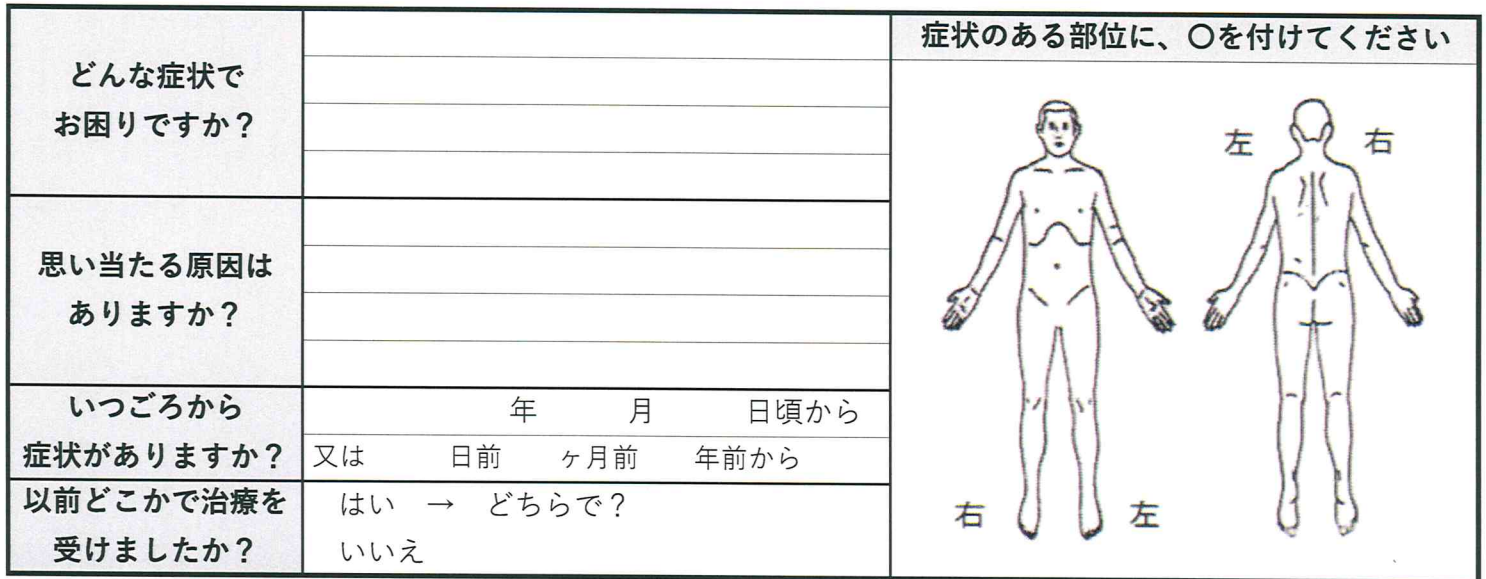 どんな症状で
お困りですか？
思い当たる原因は
ありますか？
いつごろから
症状がありますか？
年　月　日頃から
又は　日前　ヶ月前　年前から
以前どこかで治療を
受けましたか？
はい　→　どちらで？
いいえ
症状のある部位に、〇を付けてください
左　右
右　左